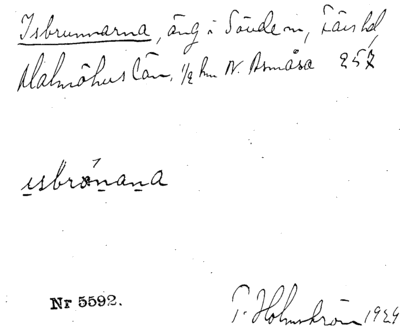 Isbrunnarna, äng i Sövde sn, Färs hd,
Malmöhus län, 1/2 km N. Asmåsa 257
isbrönana
Nr 5592.
T. Holmström 1924